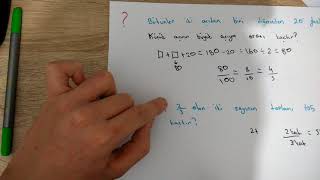 ? Bütünler iki açıdan biri diğerinden 20 fazla
Küçük açının büyük açıya oranı kaçtır?
□ + □ + 20 = 180 - 20 = 160 ÷ 2 = 80
80
80/100 = 8/10 = 4/5
olan iki sayının toplamı 105
kaçtır?
2k